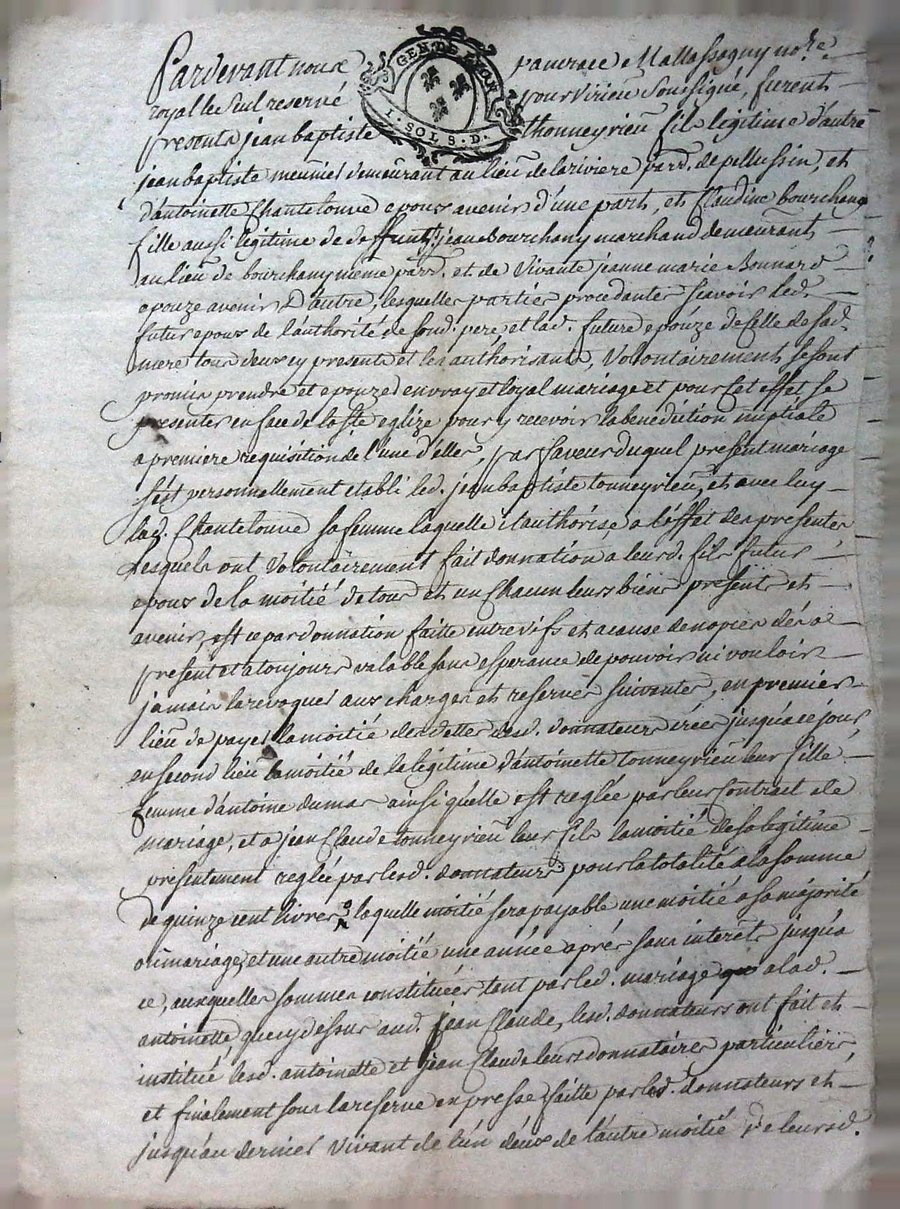 Pardevant nous pancrace Mallassagny no.re
GEN. DE LYON
1. SOL S. D.
royal le seul reservé pour Virieu soussigné, furent
presents jean baptiste thonneyrieu fils legitime d'autre
jean baptiste meunier demeurant au lieu de la riviere parr. de pellussin, et
d'antoinette Chantelouve epoux avenir d'une part, et Claudine bourchany
fille aussi legitime de deffunt jean bourchany marchand demeurant
au lieu de bourchany meme parr. et de Vivante jeanne marie Bonnard
epouze avenir D'autre, lesquelles parties procedantes scavoir led.
futur epoux de l'authorité de sond. pere et lad. future epouze de celle de sad.
mere tous deux cy presents et les authorisants, Volontairement se sont
promis prendre et epouzer en vray et loyal mariage et pour cet effet se
presenter en face de la ste eglize pour y recevoir la benediction nuptiale
a premiere requisition de l'une d'elles, par faveur duquel present mariage
s'est personnellement etabli led. jean baptiste tonneyrieu, et avec luy
lad. Chantelouve sa femme laquelle il authorise, a l'effet des presentes
Lesquels ont Volontairement fait donnation a leurd. fils futur
epoux de la moitié de tous et un Chacun leurs biens presents et
avenir, est ce par donnation faitte entre vifs et a cause de nopces dès a
present et a toujours valable sans esperance de pouvoir ni vouloir
jamais la revoquer aux charges et reserves suivantes, en premier
lieu de payer la moitié des dettes desd. donnateurs créés jusqu'a ce jour
en second lieu la moitié de la légitime d'antoinette tonneyrieu leur fille
femme d'antoine dumas ainsi qu'elle est reglée par leur Contract de
mariage, et a jean Claude tonneyrieu leur fils la moitié de sa legitime
presentement reglée par lesd. donnateurs pour la totalité a la somme
de quinze cent livres laquelle moitié sera payable une moitié a sa majorité
ou mariage, et une autre moitié une année après sans interets jusqu'a
ce, auxquelles sommes constituées tant par led. mariage a lad.
antoinette que cy dessus aud. jean Claude, lesd. donnateurs ont fait et
institué lesd. antoinette et jean Claude leurs donnataires particuliers
et finalement sous la reserve expresse faitte par lesd. donnateurs et
jusqu'au dernier vivant de l'un deux de l'autre moitié de leursd.